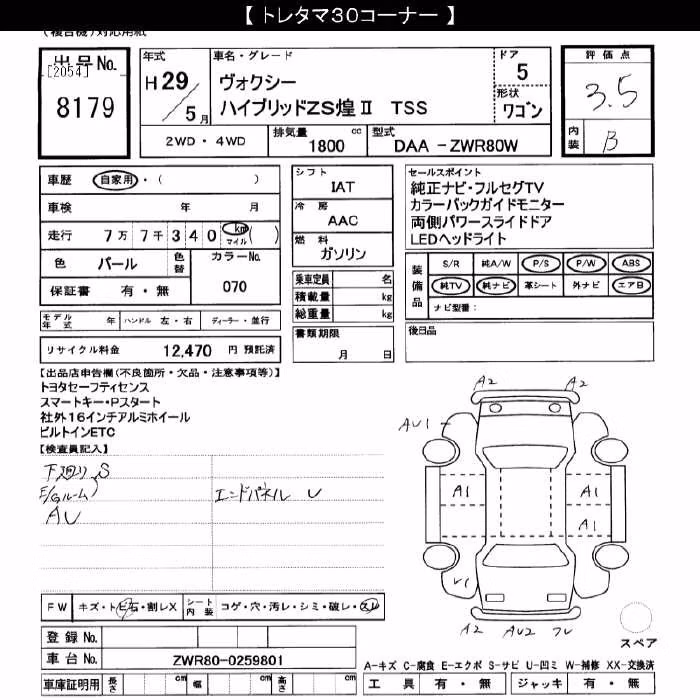 【 トレタマ30コーナー 】
(複合機)対応用紙
出品No.
[2054]
8179
年式
H 29
5 月
車名・グレード
ヴォクシー
ハイブリッドZS煌Ⅱ TSS
ドア
5
形状
ワゴン
評価点
3.5
内装
B
2WD・4WD
排気量
1800 cc
型式
DAA -ZWR80W
車歴 自家用・( )
車検 年 月
走行 7万 7千 3 4 0 km マイル ( )
色 パール
色替
カラーNo.
070
保証書 有・無
シフト
IAT
冷房
AAC
燃料
ガソリン
乗車定員 名
積載量 kg
総重量 kg
書類期限
月 日
セールスポイント
純正ナビ・フルセグTV
カラーバックガイドモニター
両側パワースライドドア
LEDヘッドライト
装備品
S/R 純A/W P/S P/W ABS
純TV 純ナビ 革シート 外ナビ エアB
ナビ型番:
後日品
モデル年式 年 ハンドル 左・右 ディーラー・並行
リサイクル料金 12,470 円 預託済
【出品店申告欄(不良箇所・欠品・注意事項等)】
トヨタセーフティセンス
スマートキー・Pスタート
社外16インチアルミホイール
ビルトインETC
【検査員記入】
下廻り S
E/Gルーム
AU
エンドパネル U
A2 A2
AU1
A1 A1
A1
U1
A2 AU2 フレ
スペア
FW キズ・トビ石・割レX
シート内装 コゲ・穴・汚レ・シミ・破レ・スレ
登録No.
車台No. ZWR80-0259801
車庫証明用 長さ cm 幅 cm 高さ cm
A-キズ C-腐食 E-エクボ S-サビ U-凹ミ W-補修 XX-交換済
工具 有・無 ジャッキ 有・無